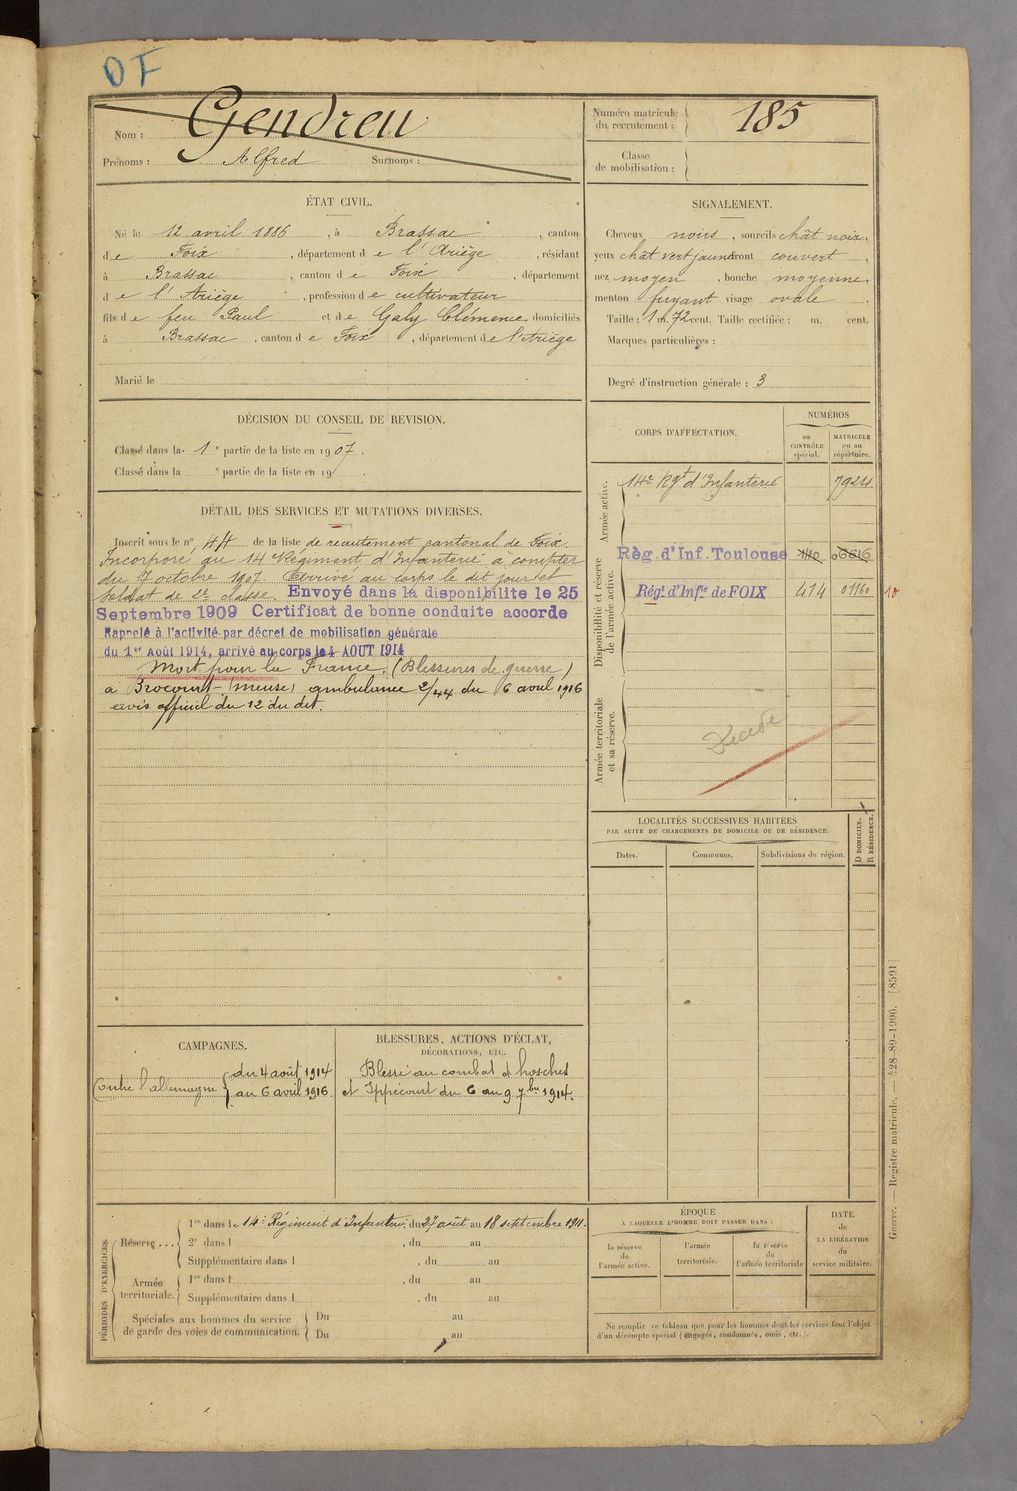 DF
Nom : Gendreu
Prénoms : Alfred Surnoms :
Numéro matricule du recrutement : 185
Classe de mobilisation :
ÉTAT CIVIL.
Né le 12 avril 1886, à Brassac, canton
de Foix, département de l'Ariège, résidant
à Brassac, canton de Foix, département
de l'Ariège, profession de cultivateur
fils de feu Paul et de Galy Clémence, domiciliés
à Brassac, canton de Foix, département de l'Ariège
Marié le
SIGNALEMENT.
Cheveux noirs, sourcils chât noir,
yeux chât vert jaune front couvert,
nez moyen, bouche moyenne,
menton fuyant visage ovale.
Taille : 1 m. 72 cent. Taille rectifiée : m. cent.
Marques particulières :
Degré d'instruction générale : 3
DÉCISION DU CONSEIL DE REVISION.
Classé dans la 1e partie de la liste en 1907.
Classé dans la e partie de la liste en 19 .
DÉTAIL DES SERVICES ET MUTATIONS DIVERSES.
Inscrit sous le n° 44 de la liste de recrutement cantonal de Foix.
Incorporé au 14e Régiment d'Infanterie à compter
du 7 octobre 1907. Arrivé au corps le dit jour et
soldat de 2e classe. Envoyé dans la disponibilite le 25
Septembre 1909 Certificat de bonne conduite accorde
Rappelé à l'activité par décret de mobilisation générale
du 1er Août 1914, arrivé au corps le 4 AOUT 1914
Mort pour la France. (Blessures de guerre)
à Brocourt - (meuse) ambulance 2/44 du 6 avril 1916
avis officiel du 12 du dit.
CORPS D'AFFECTATION.
NUMÉROS
au CONTRÔLE spécial.
MATRICULE ou au répertoire.
Armée active.
14e Rgt d'Infanterie 7924
Disponibilité et réserve de l'armée active.
Règ. d'Inf. Toulouse 1110 06616
Rég. d'Infie de FOIX 414 01160 10
Armée territoriale et sa réserve.
Décédé
LOCALITÉS SUCCESSIVES HABITÉES
PAR SUITE DE CHANGEMENTS DE DOMICILE OU DE RÉSIDENCE.
Dates. Communes. Subdivisions de région.
D DOMICILE. R RÉSIDENCE.
CAMPAGNES.
Contre l'allemagne
du 4 août 1914
au 6 avril 1916
BLESSURES, ACTIONS D'ÉCLAT,
DÉCORATIONS, ETC.
Blessé au combat d'hosches
et Ippécourt du 6 au 9 7bre 1914.
PÉRIODES D'EXERCICES.
Réserve ...
1re dans le 14e Régiment d'Infanterie, du 27 août au 18 septembre 1911.
2e dans l , du au
Supplémentaire dans l , du au
Armée territoriale.
1re dans l , du au
Supplémentaire dans l , du au
Spéciales aux hommes du service de garde des voies de communication.
Du au
Du au
ÉPOQUE
À LAQUELLE L'HOMME DOIT PASSER DANS :
la réserve de l'armée active.
l'armée territoriale.
la réserve de l'armée territoriale
DATE de LA LIBÉRATION du service militaire.
Ne remplir ce tableau que pour les hommes dont les services font l'objet
d'un décompte spécial (engagés, condamnés, omis, etc.).
Guerre. — Registre matricule. — 428-89-1906. [8591]